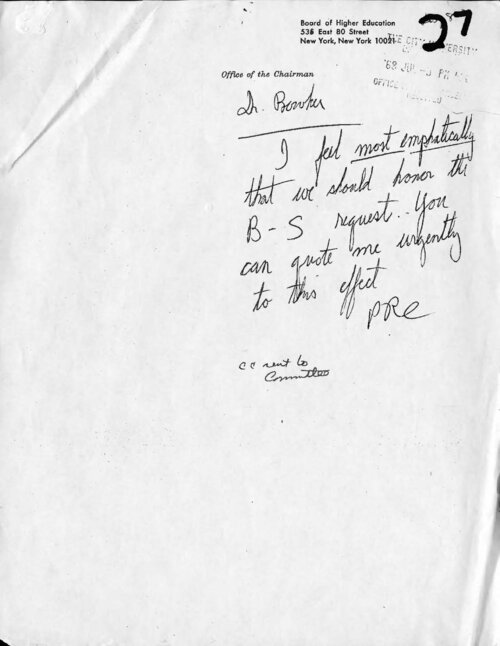 Board of Higher Education
535 East 80 Street
New York, New York 10021
27
THE CITY UNIVERSITY
'68 JUL PM
OFFICE
Office of the Chairman
Dr. Bowker
I feel most emphatically
that we should honor the
B-S request.. You
can quote me urgently
to this effect
PRE
CC sent to
Committee